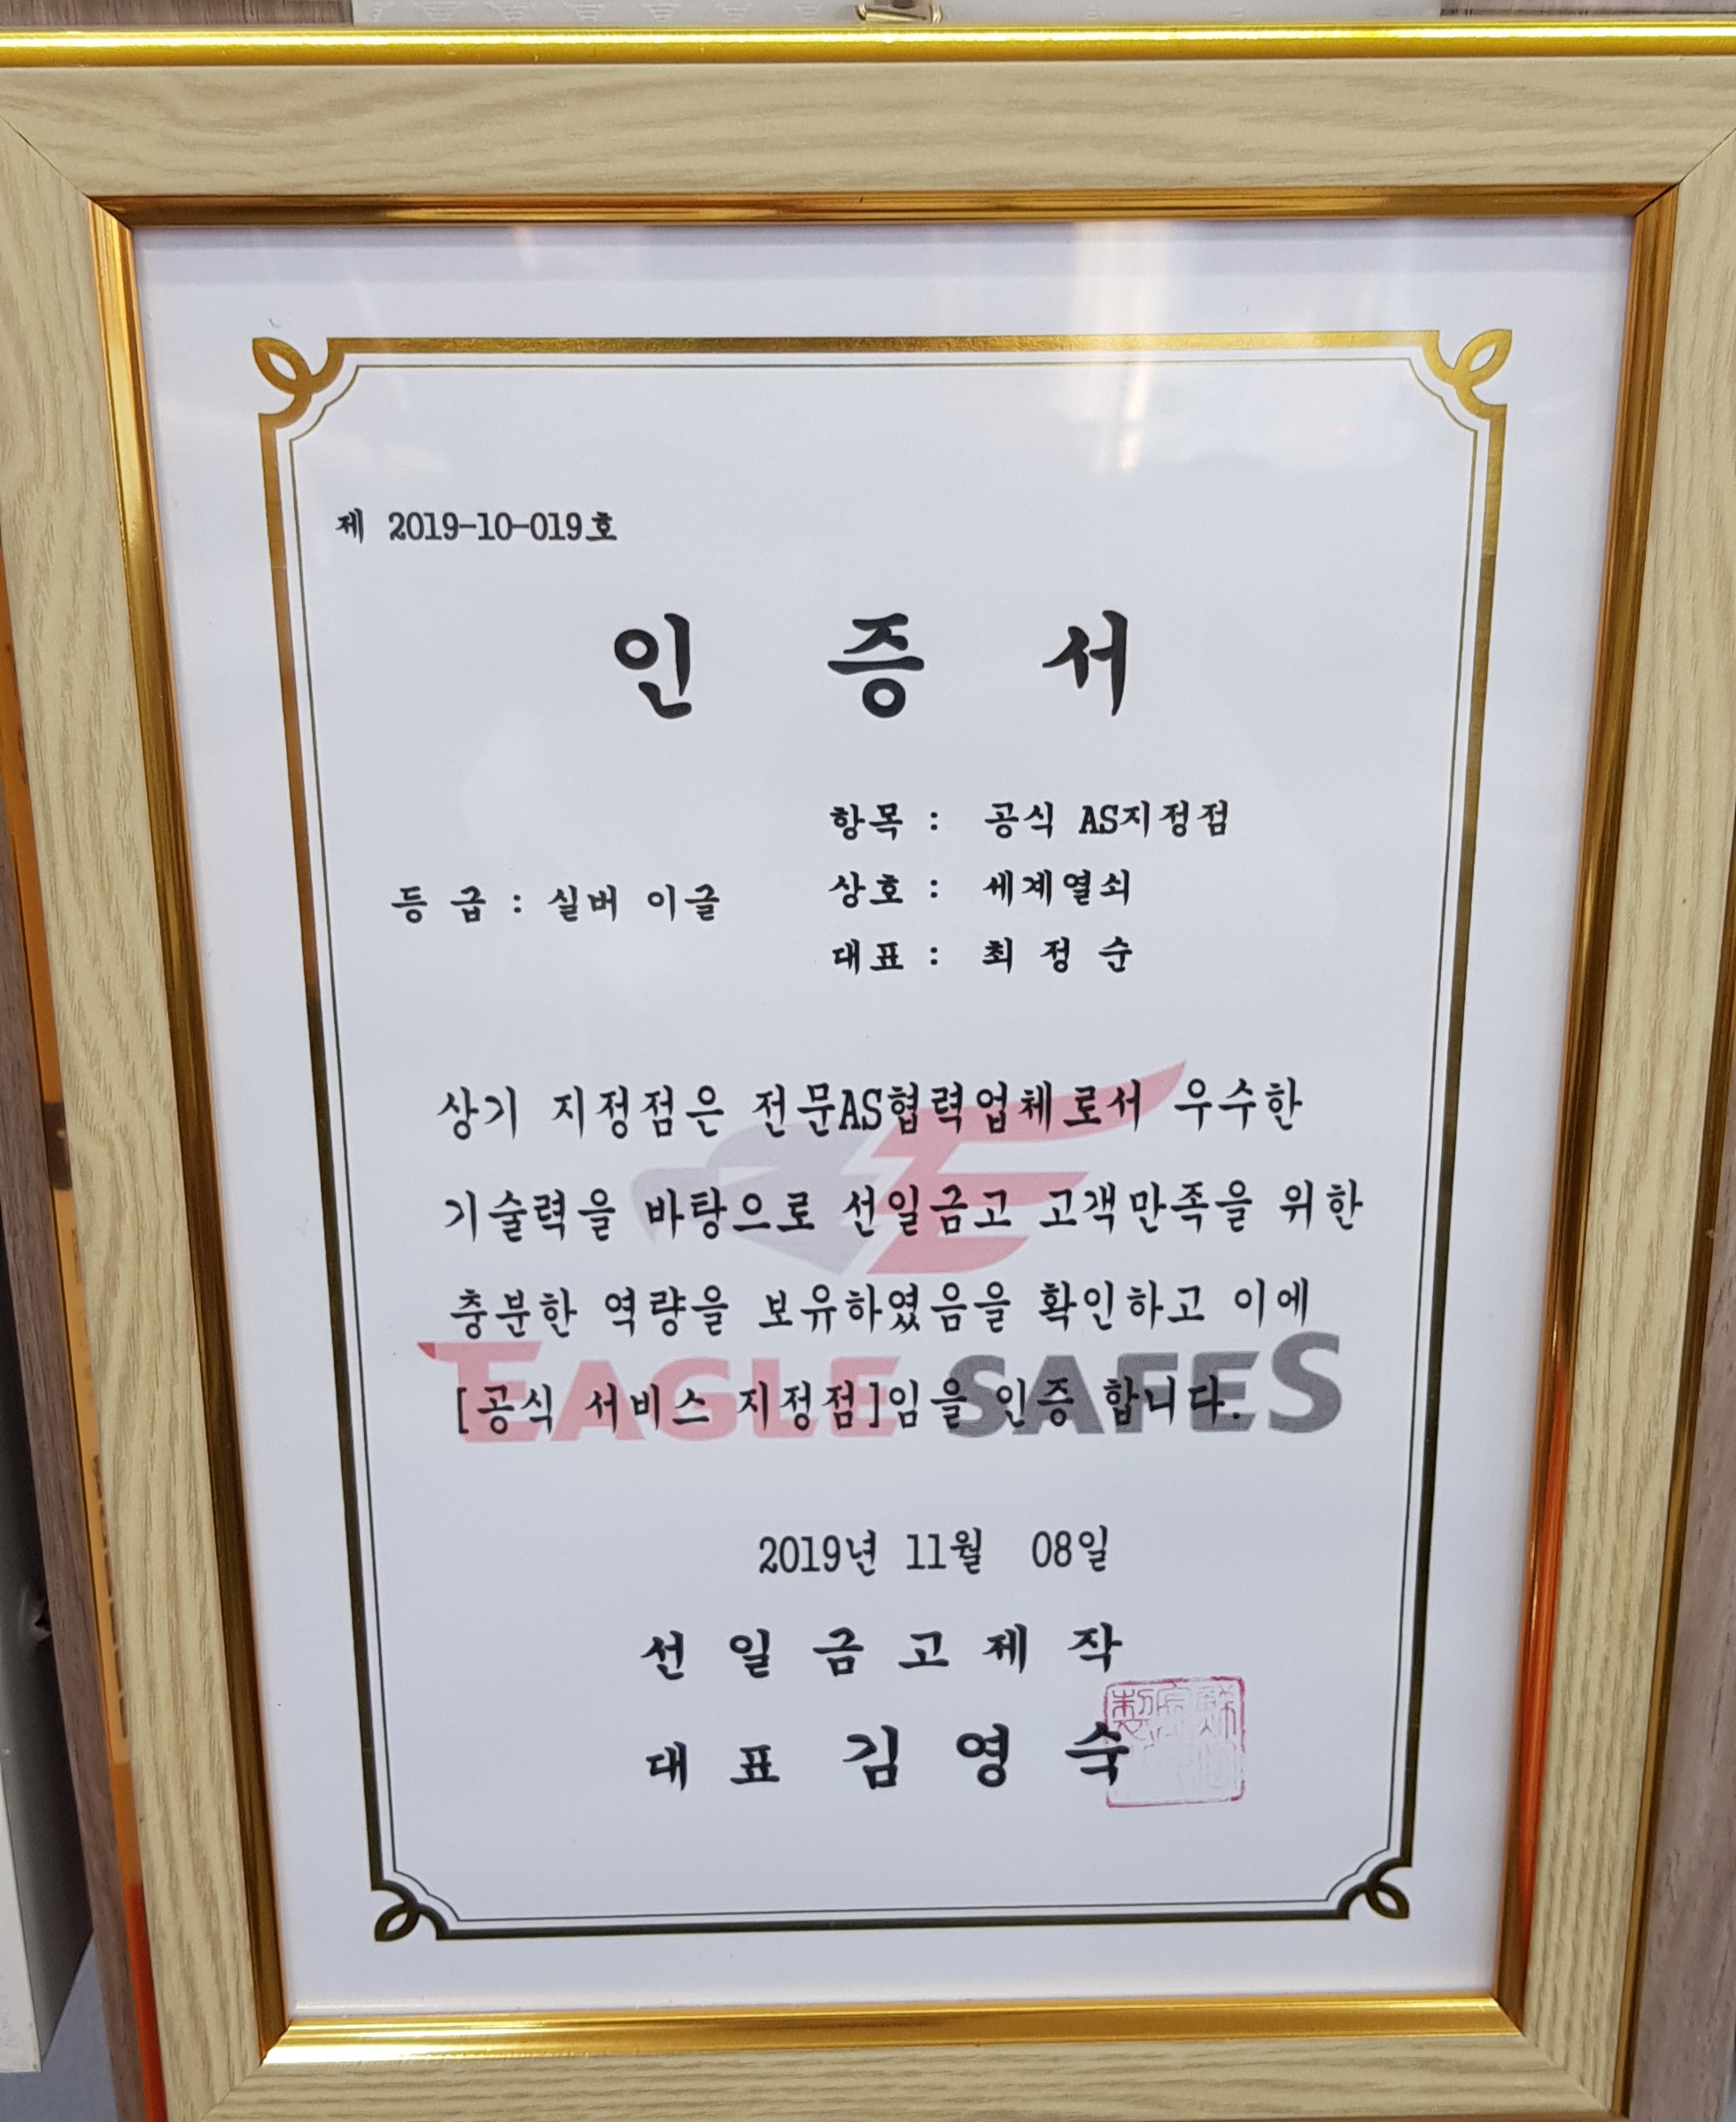 제 2019-10-019호
인 증 서
항목 : 공식 AS지정점
등 급 : 실버 이글
상호 : 세계열쇠
대표 : 최 정 순
상기 지정점은 전문AS협력업체로서 우수한
기술력을 바탕으로 선일금고 고객만족을 위한
충분한 역량을 보유하였음을 확인하고 이에
EAGLE SAFES
[공식 서비스 지정점]임을 인증 합니다.
2019년 11월 08일
선 일 금 고 제 작
대 표 김 영 숙